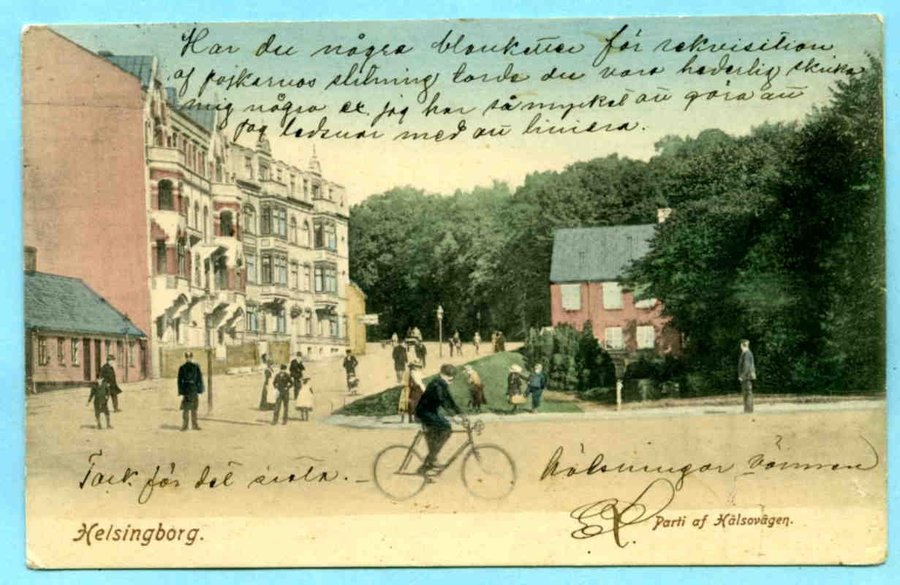 Har du några blanketter för rekvisition
af pojkarnos slitning torde du vara hederlig skicka
mig några ex. jag har så mycket att göra att
jag ledsnar med att liniera.
Tack för det sista.-
Hälsningar vännen
Helsingborg.
Parti af Hälsovägen.